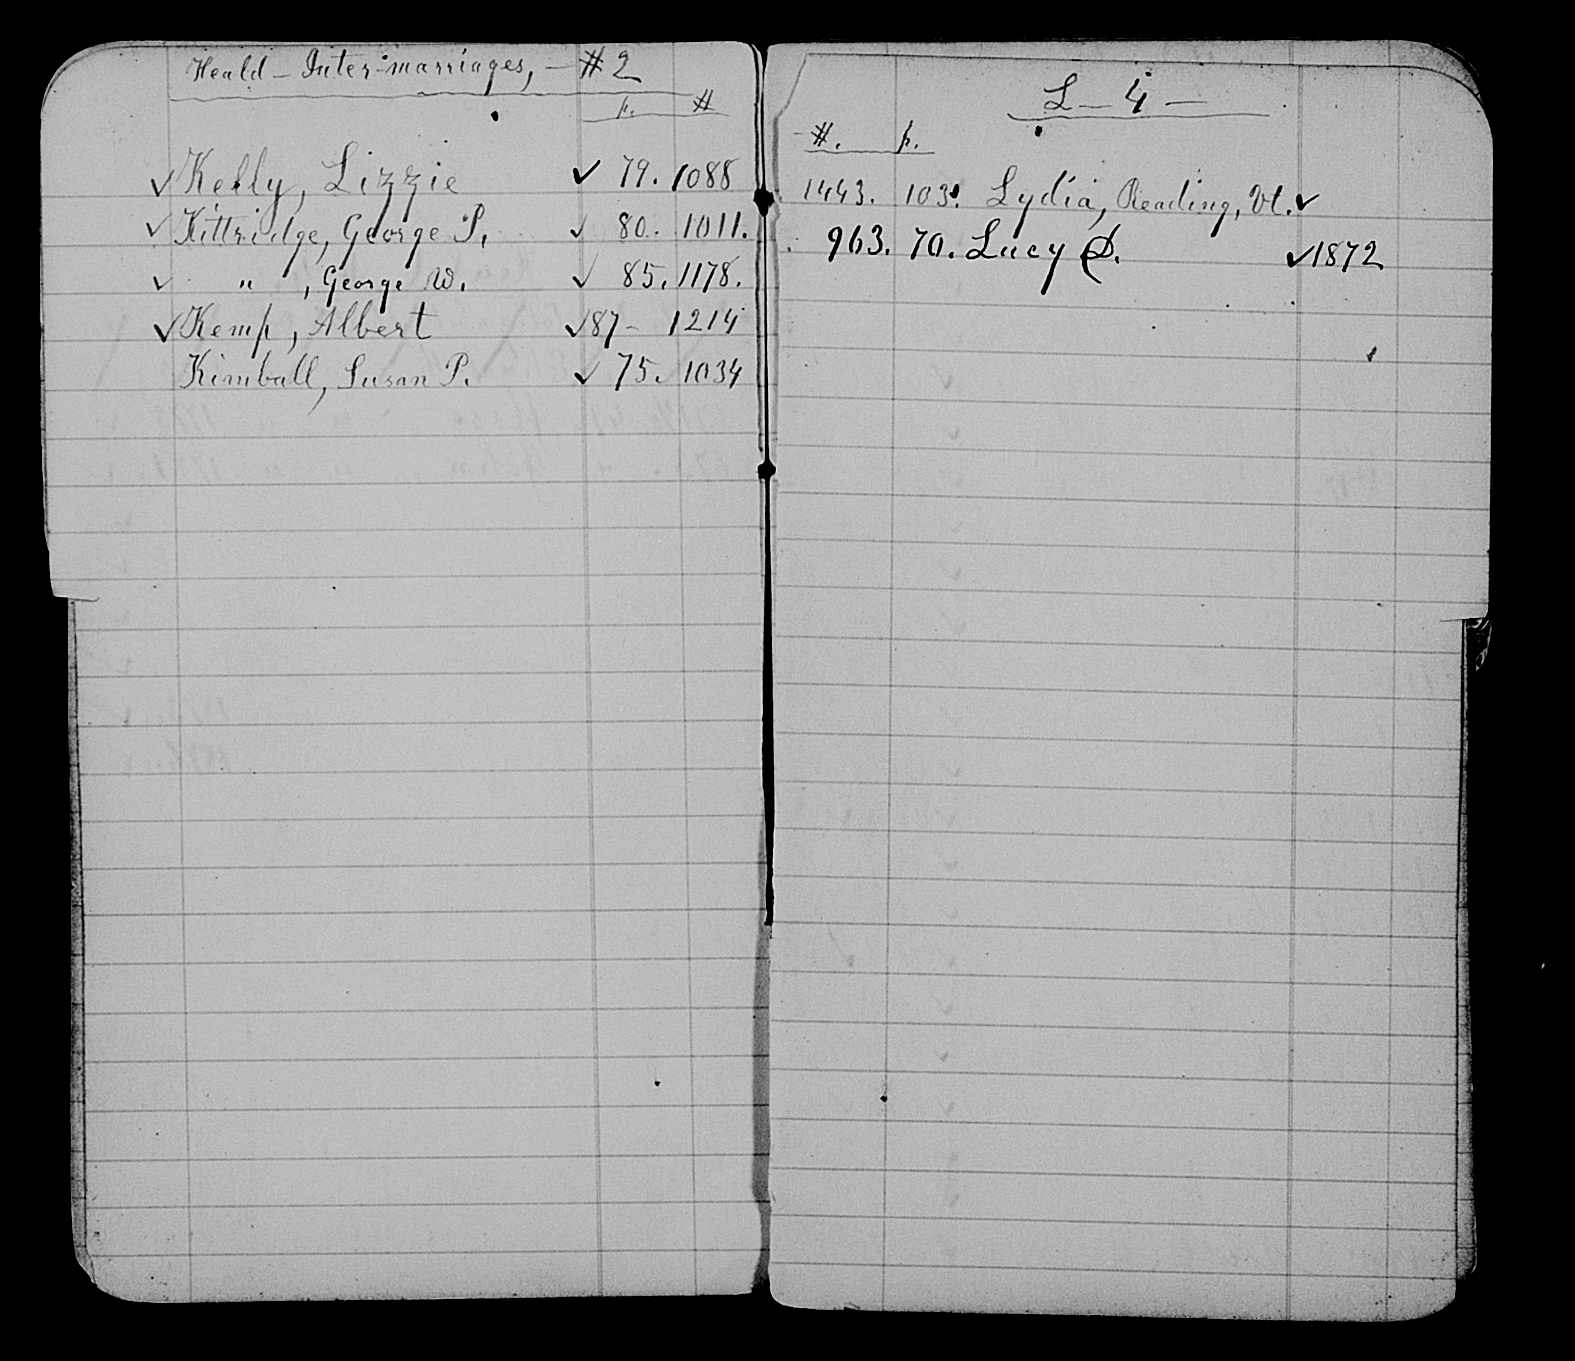 Heald - Inter-marriages, - # 2
p. #
✓ Kelly, Lizzie ✓ 79. 1088
✓ Kittridge, George P. ✓ 80. 1011.
✓ " , George W. ✓ 85. 1178.
✓ Kemp, Albert ✓ 87- 1214
Kimball, Susan P. ✓ 75. 1034
L - 4 -
#. p.
1443. 103. Lydia, Reading, Vt. ✓
963. 70. Lucy S. ✓ 1872